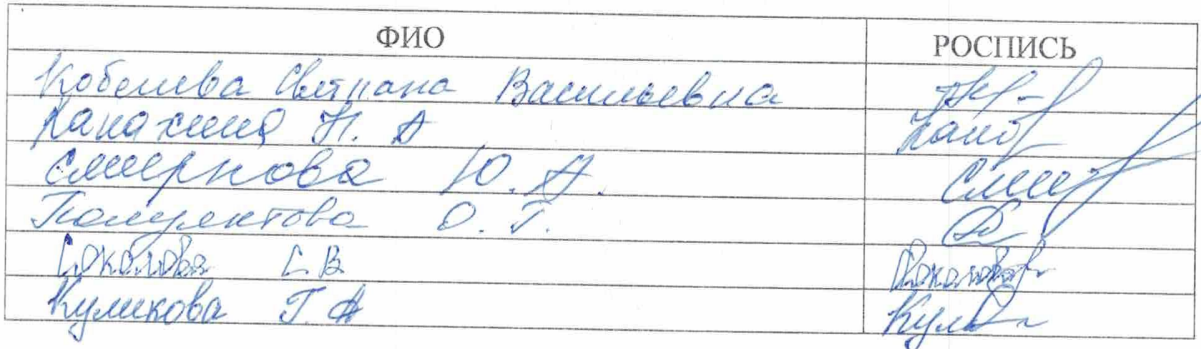 ФИО РОСПИСЬ
Кобелева Светлана Васильевна
Канахина Н. А Кана
Смирнова Ю. А. Сми
Полуектова О. Г.
Соколова С В Соколова
Куликова Г. А Кули